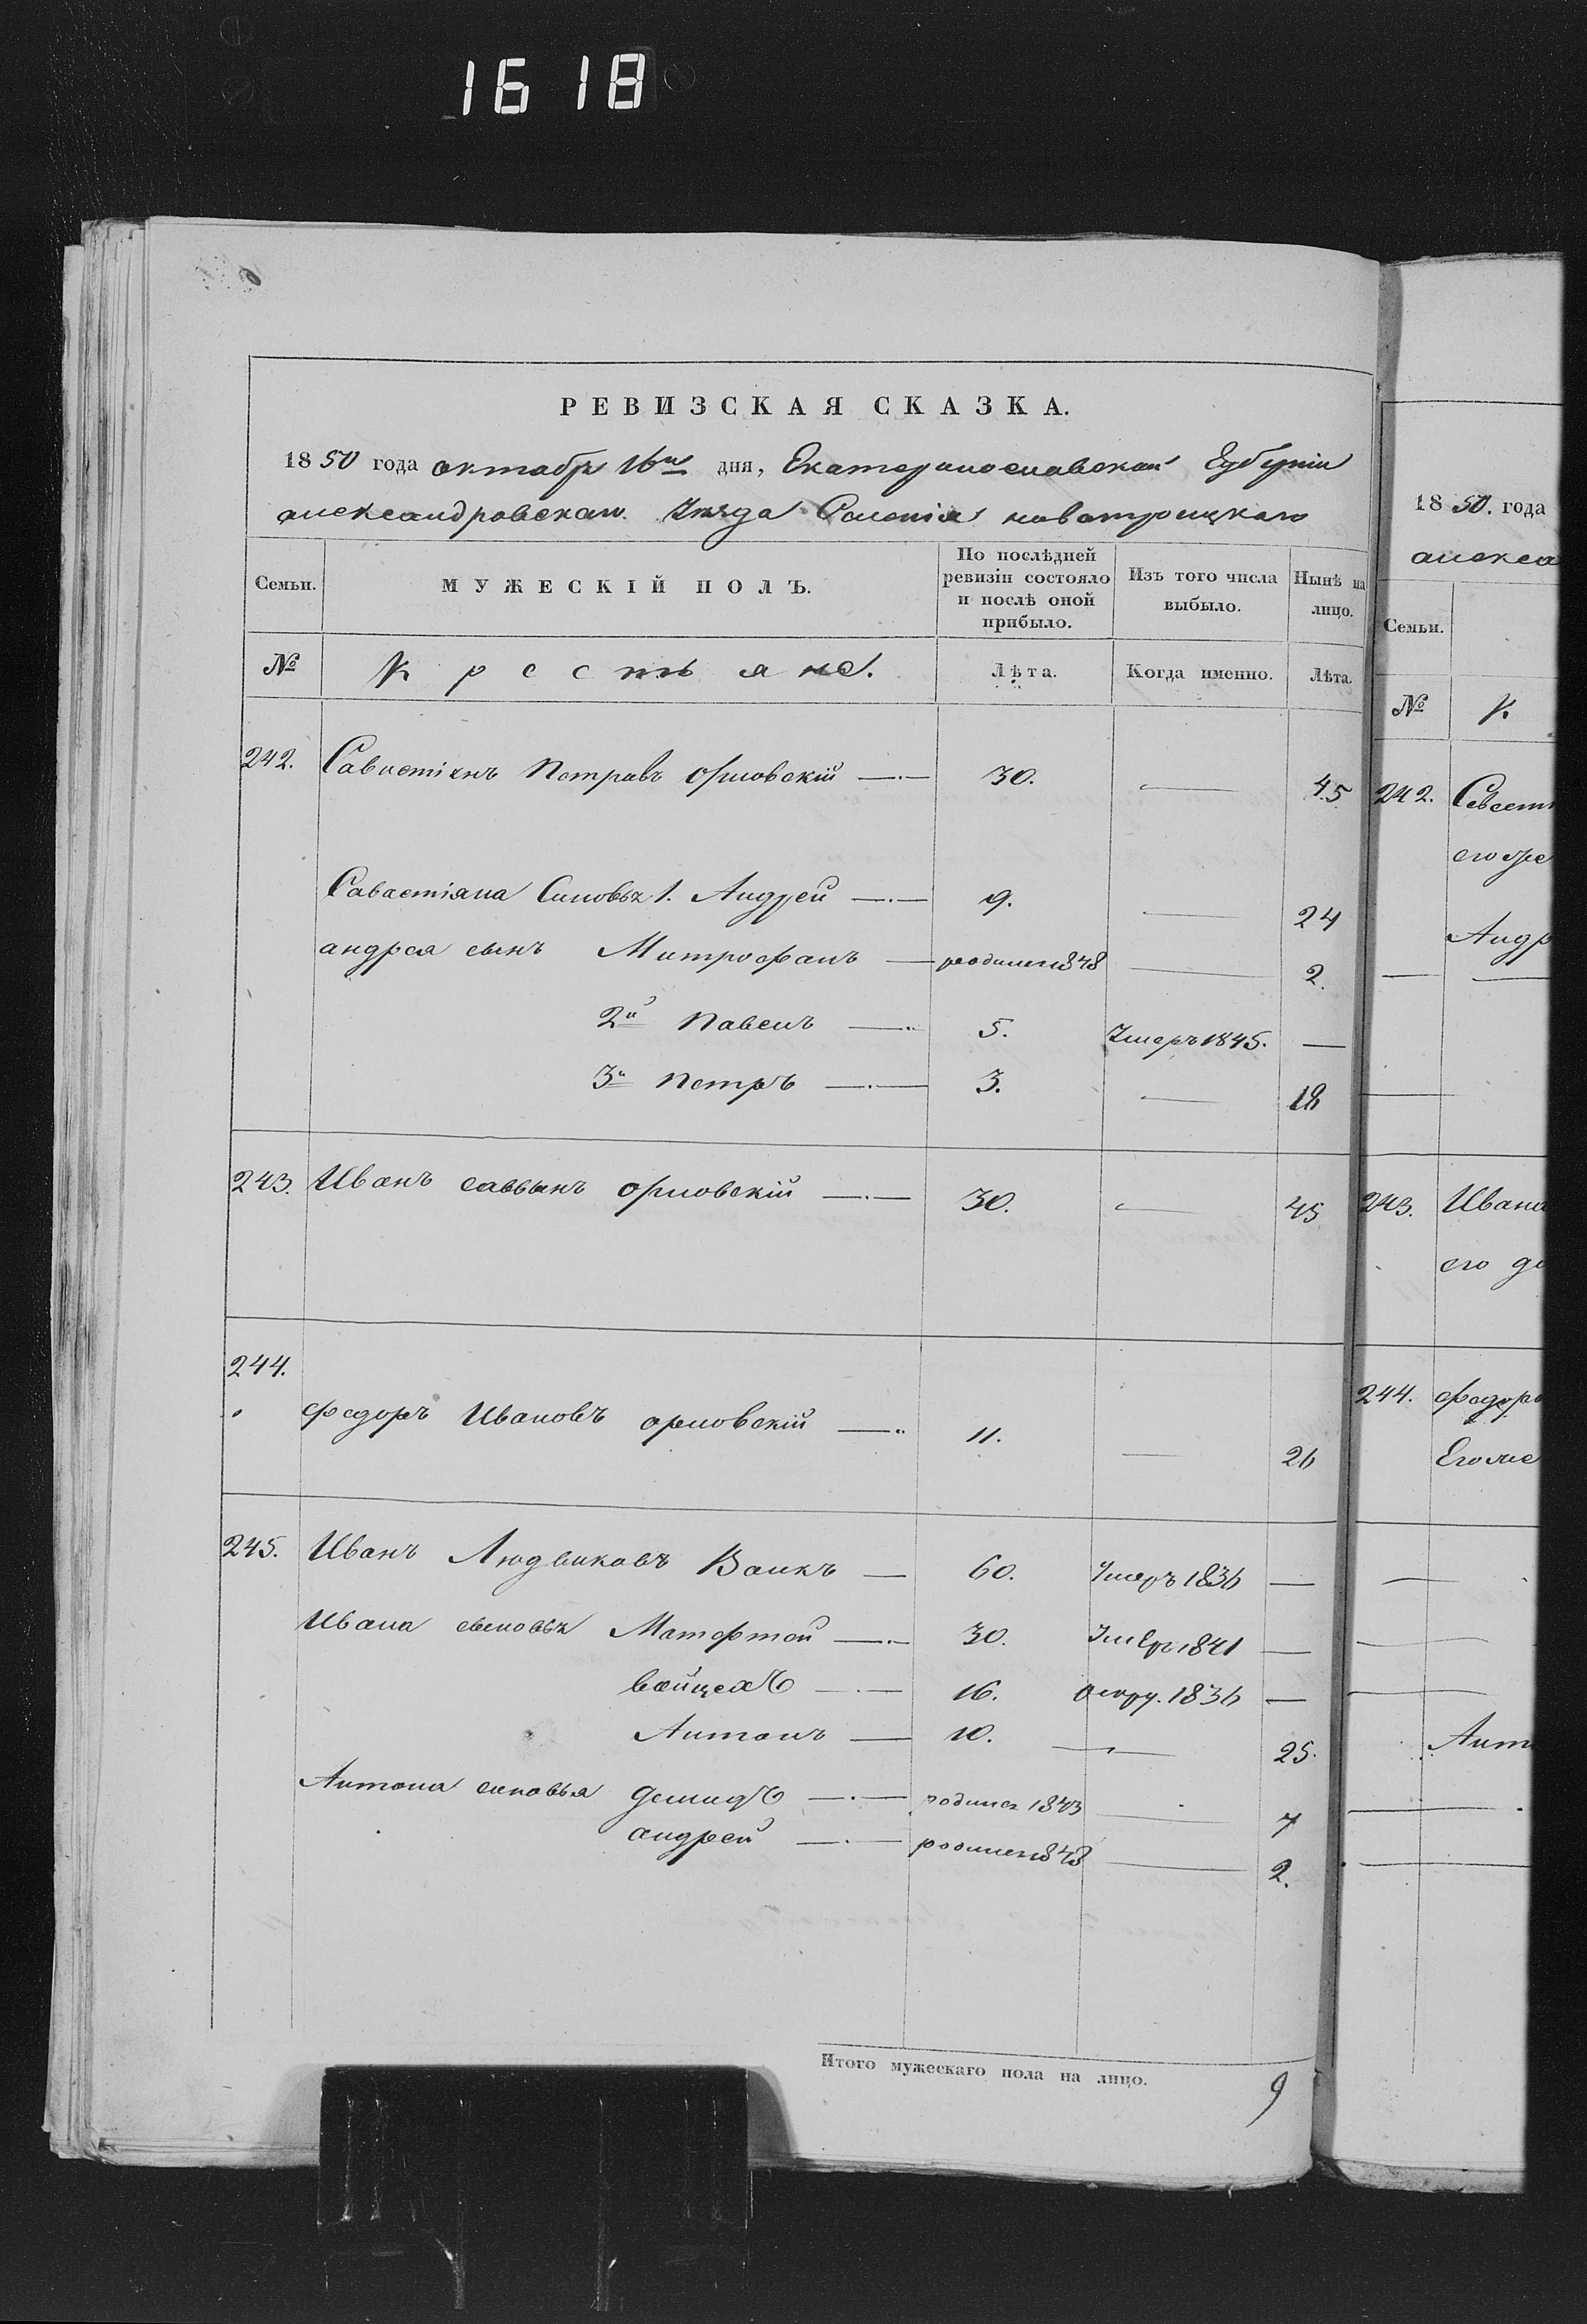 1618
РЕВИЗСКАЯ СКАЗКА.
1850 года октября 16го дня, Екатеринославской Губерніи
александровскаго Уѣзда Селенія новотроицкаго
Семьи. МУЖЕСКІЙ ПОЛЪ. По послѣдней ревизіи состояло и послѣ оной прибыло. Изъ того числа выбыло. Нынѣ на лицо.
№ Крестьяне. Лѣта. Когда именно. Лѣта.
242. Савастіянъ Петровъ Орловскій 30. 45
Савастіяна Сыновья 1. Андрей 9. 24
андрея сынъ Митрофанъ родился 1848 2.
2й Павелъ 5. Умеръ 1845.
3й Петръ 3. 18
243. Иванъ саввынъ орловскій 30. 45
244.
федоръ Ивановъ орловскій 11. 26
245. Иванъ Людвиковъ Валкъ 60. Умеръ 1836
Ивана сыновья 30. Умеръ 1841
войцехъ 16. 1836
Антонъ 10. 25.
Антона сыновья демидъ родился 1843 7
андрей родился 1848 2.
Итого мужескаго пола на лицо. 9
1850. года
алекса
Семьи.
№ К
242.
Андр
243. Ивана
его до
244. федора
Его же
Анто